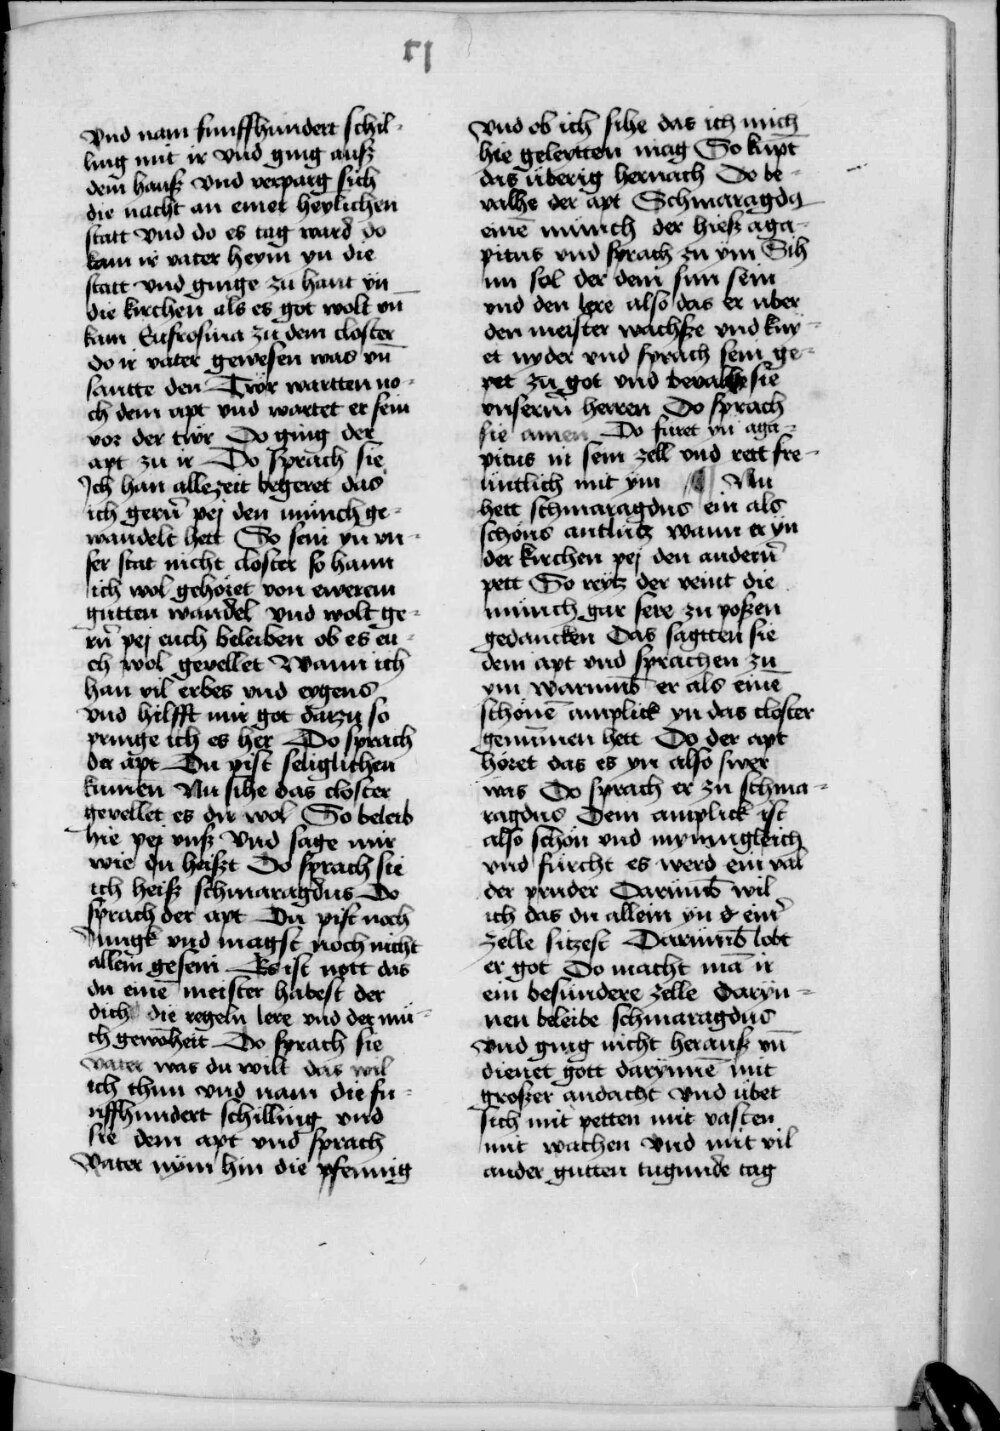 rj
Vnd nam funffhundert schil-
ling mit ir vnd ging auß
dem hauß vnd verparg sich
die nacht an einer heylichen
statt vnd do es tag ward do
kam ir vater heym yn die
statt vnd ginge zu hant yn
die kirchen als es got wolt vn̄
kam Eufrosina zu dem closter
do ir vater gewesen was vn̄
santte den Twr wartten no-
ch dem apt vnd wartet er sein
vor der twr Do ging der
apt zu ir Do sprach sie
Ich han allezeit begeret das
ich gern̄ pej den munch ge-
wandelt hett So sein yn vn-
ser stat nicht closter so hann
ich wol gehöret von ewerem
gutten wandel vnd wolt ge-
rn̄ pej euch beleiben ob es eu-
ch wol gevellet Wann ich
han vil erbes vnd eygens
vnd hilfft mir got darzu so
pringe ich es her Do sprach
der apt Du pist seliglichen
kumen Nu sihe das closter
gevellet es dir wol So beleib
hie pej vnß Vnd sage mir
wie du heißt Do sprach sie
ich heiß schmaragdus Do
sprach der apt Du pist noch
Jungk vnd magst noch nicht
allein gesein Es ist nott das
du einē meister habest der
dich die regeln lere vnd der mü-
ch gewoheit Do sprach sie
vater was du wilt das wil
ich thun vnd nam die fu-
nffhundert schilling vnd
sie dem apt vnd sprach
Vater nÿm hin die pfennig
Vnd ob ich sihe das ich mich
hie geleytten mag So kūpt
das überig hernach Do be-
valhe der apt Schmaragdū
einē münch der hieß aga-
pitus vnd sprach zu ym Sih
nu sol der dein sun sein
vnd den lere also das er uber
den meister wachße vnd kny-
et nyder vnd sprach sein ge-
pet zu got vnd bevalhe sie
vnserm̄ herren Do sprach
sie amen Do furet yn aga-
pitus in sein zell vnd rett fre-
untlich mit ym Nu
hett schmaragdus ein als
schöns antlütz wann er yn
der kirchen pej den andern̄
pett So reytz der veint die
münch gar sere zu poßen
gedancken Das sagtten sie
dem apt vnd sprachen zu
ym warumb er als einē
schönē anplick yn das closter
genūmen hett Do der apt
höret das es yn also swer
was Do sprach er zu schma-
ragdus Dein anplick ist
also schön vnd mynnigleich
vnd fürcht es werd ein val
der pruder Darumb wil
ich das du allein yn d einr̄
zelle sitzest Darumb lobt
er got Do macht mā ir
ein besundere zelle darÿn-
nen beleibe schmaragdus
vnd ging nicht herauß vn̄
dienet gott darÿnnē mit
großer andacht Vnd übet
sich mit petten mit vasten
mit wachen Vnd mit vil
ander gutten tugunde tag